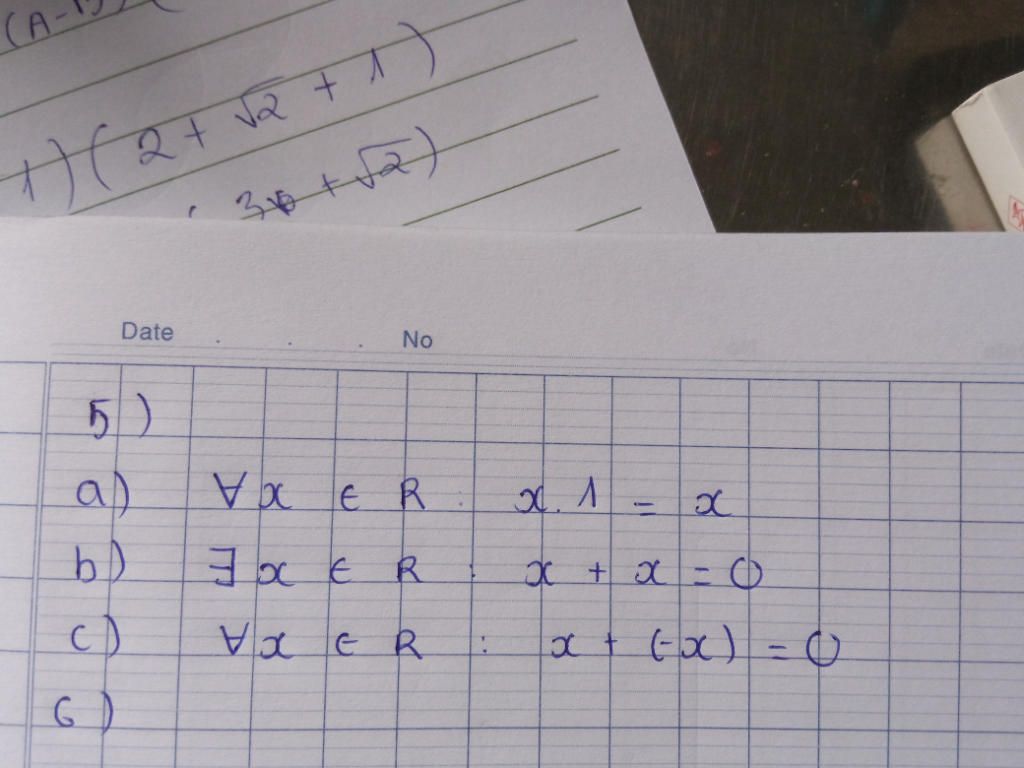 (A-
1)(2+√2+1)
3 +√2)
Date . . . No
5)
a) ∀x ∈ R : x.1 = x
b) ∃x ∈ R : x + x = 0
c) ∀x ∈ R : x + (-x) = 0
6)